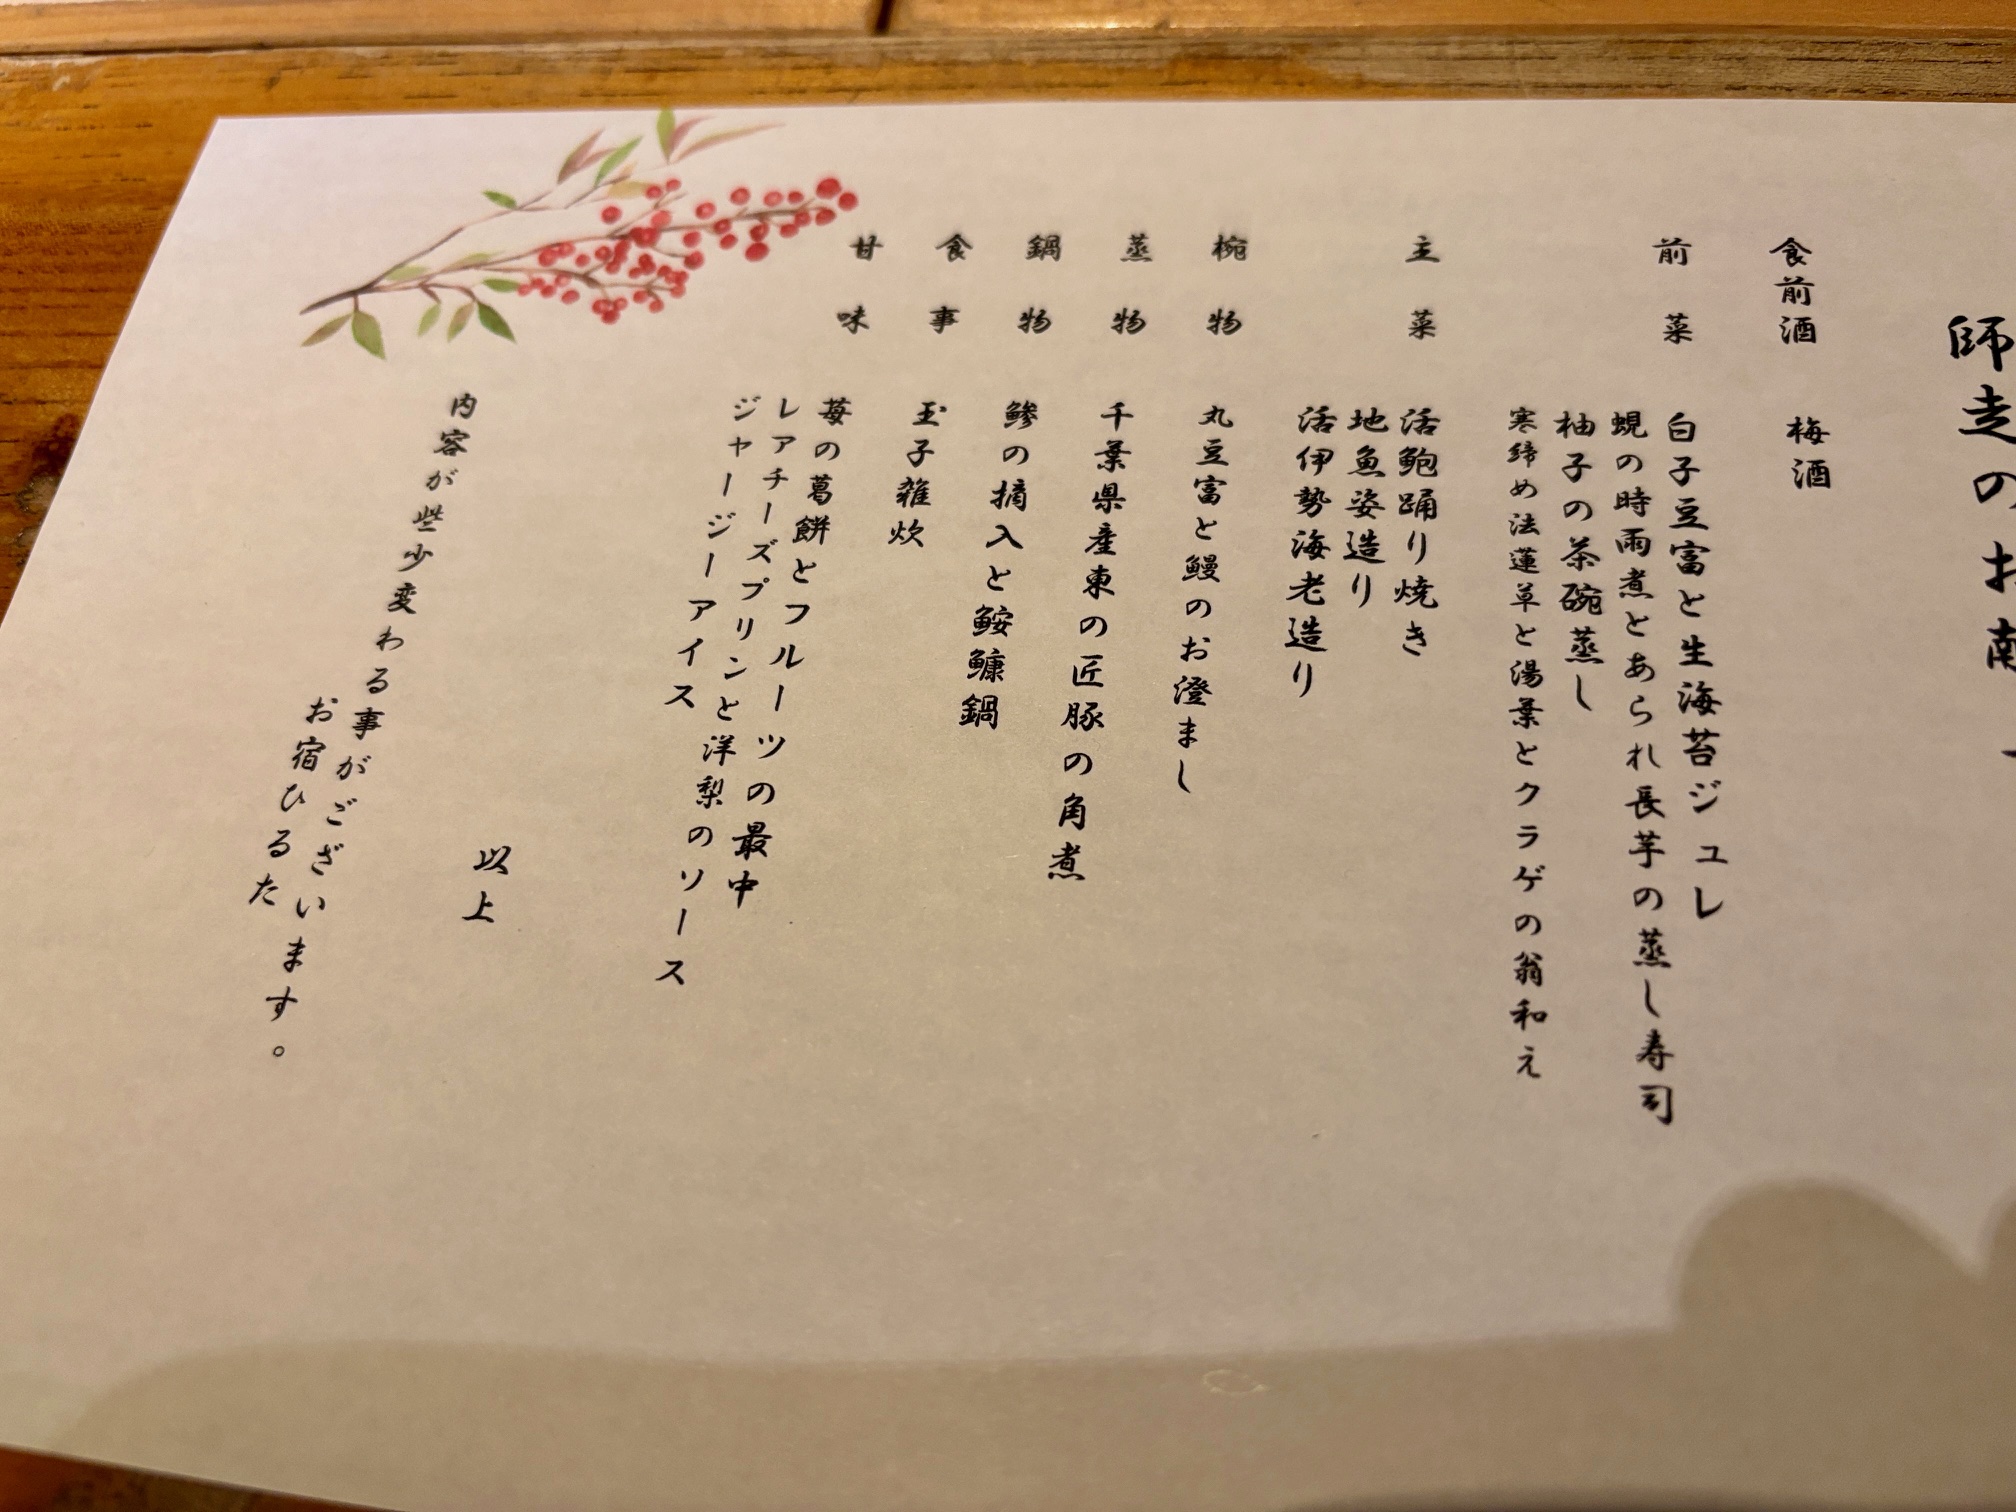 師走のお
食前酒 梅酒
前菜 白子豆富と生海苔ジュレ
蜆の時雨煮とあられ長芋の蒸し寿司
柚子の茶碗蒸し
寒締め法蓮草と湯葉とクラゲの翁和え
主菜 活鮑踊り焼き
地魚姿造り
活伊勢海老造り
椀物 丸豆富と鰻のお澄まし
蒸物 千葉県産東の匠豚の角煮
鍋物 鯵の摘入と鮟鱇鍋
食事 玉子雑炊
甘味 苺の葛餅とフルーツの最中
レアチーズプリンと洋梨のソース
ジャージーアイス
以上
内容が些少変わる事がございます。
お宿ひるた